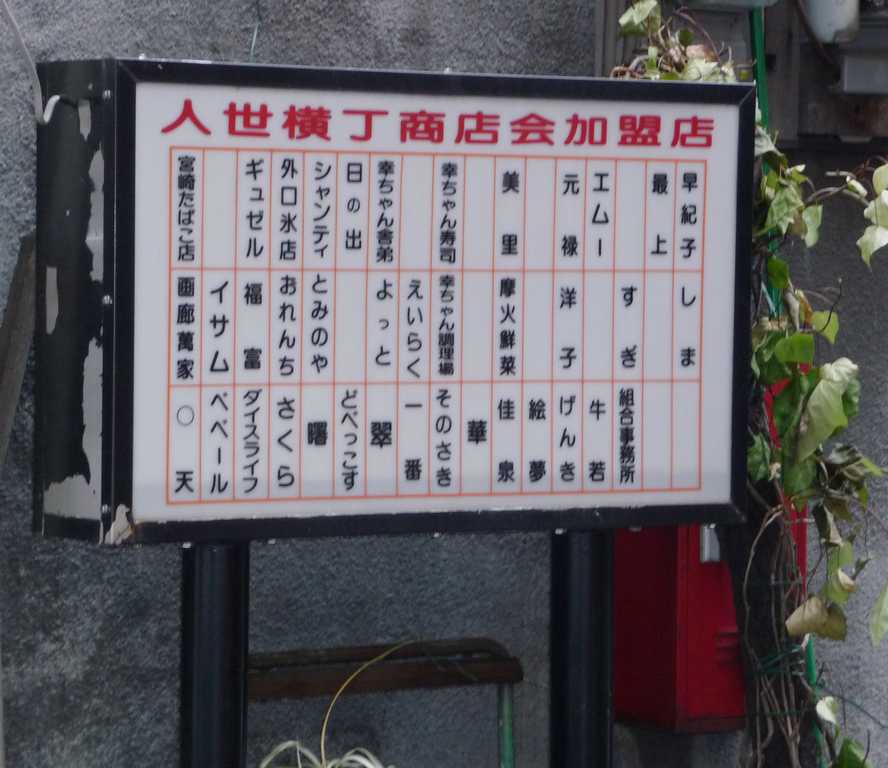 人世横丁商店会加盟店
早紀子
最上
エムー
元禄
美里
幸ちゃん寿司
幸ちゃん舎弟
日の出
シャンティ
外口氷店
ギュゼル
宮崎たばこ店
しま
すぎ
洋子
摩火鮮菜
幸ちゃん調理場
えいらく
よっと
とみのや
おれんち
福富
イサム
画廊萬家
組合事務所
牛若
げんき
絵夢
佳泉
華
そのさき
一番
翠
どべっこす
曙
さくら
ダイスライフ
ペペール
○天